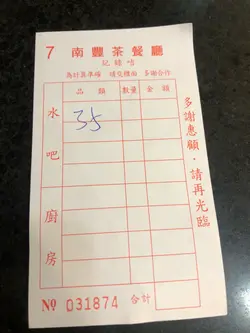 7 南豐茶餐廳
記錄咭
為計算準確 請交櫃面 多謝合作
品類 數量 金額
水吧
35
廚房
多謝惠顧·請再光臨
№ 031874 合計